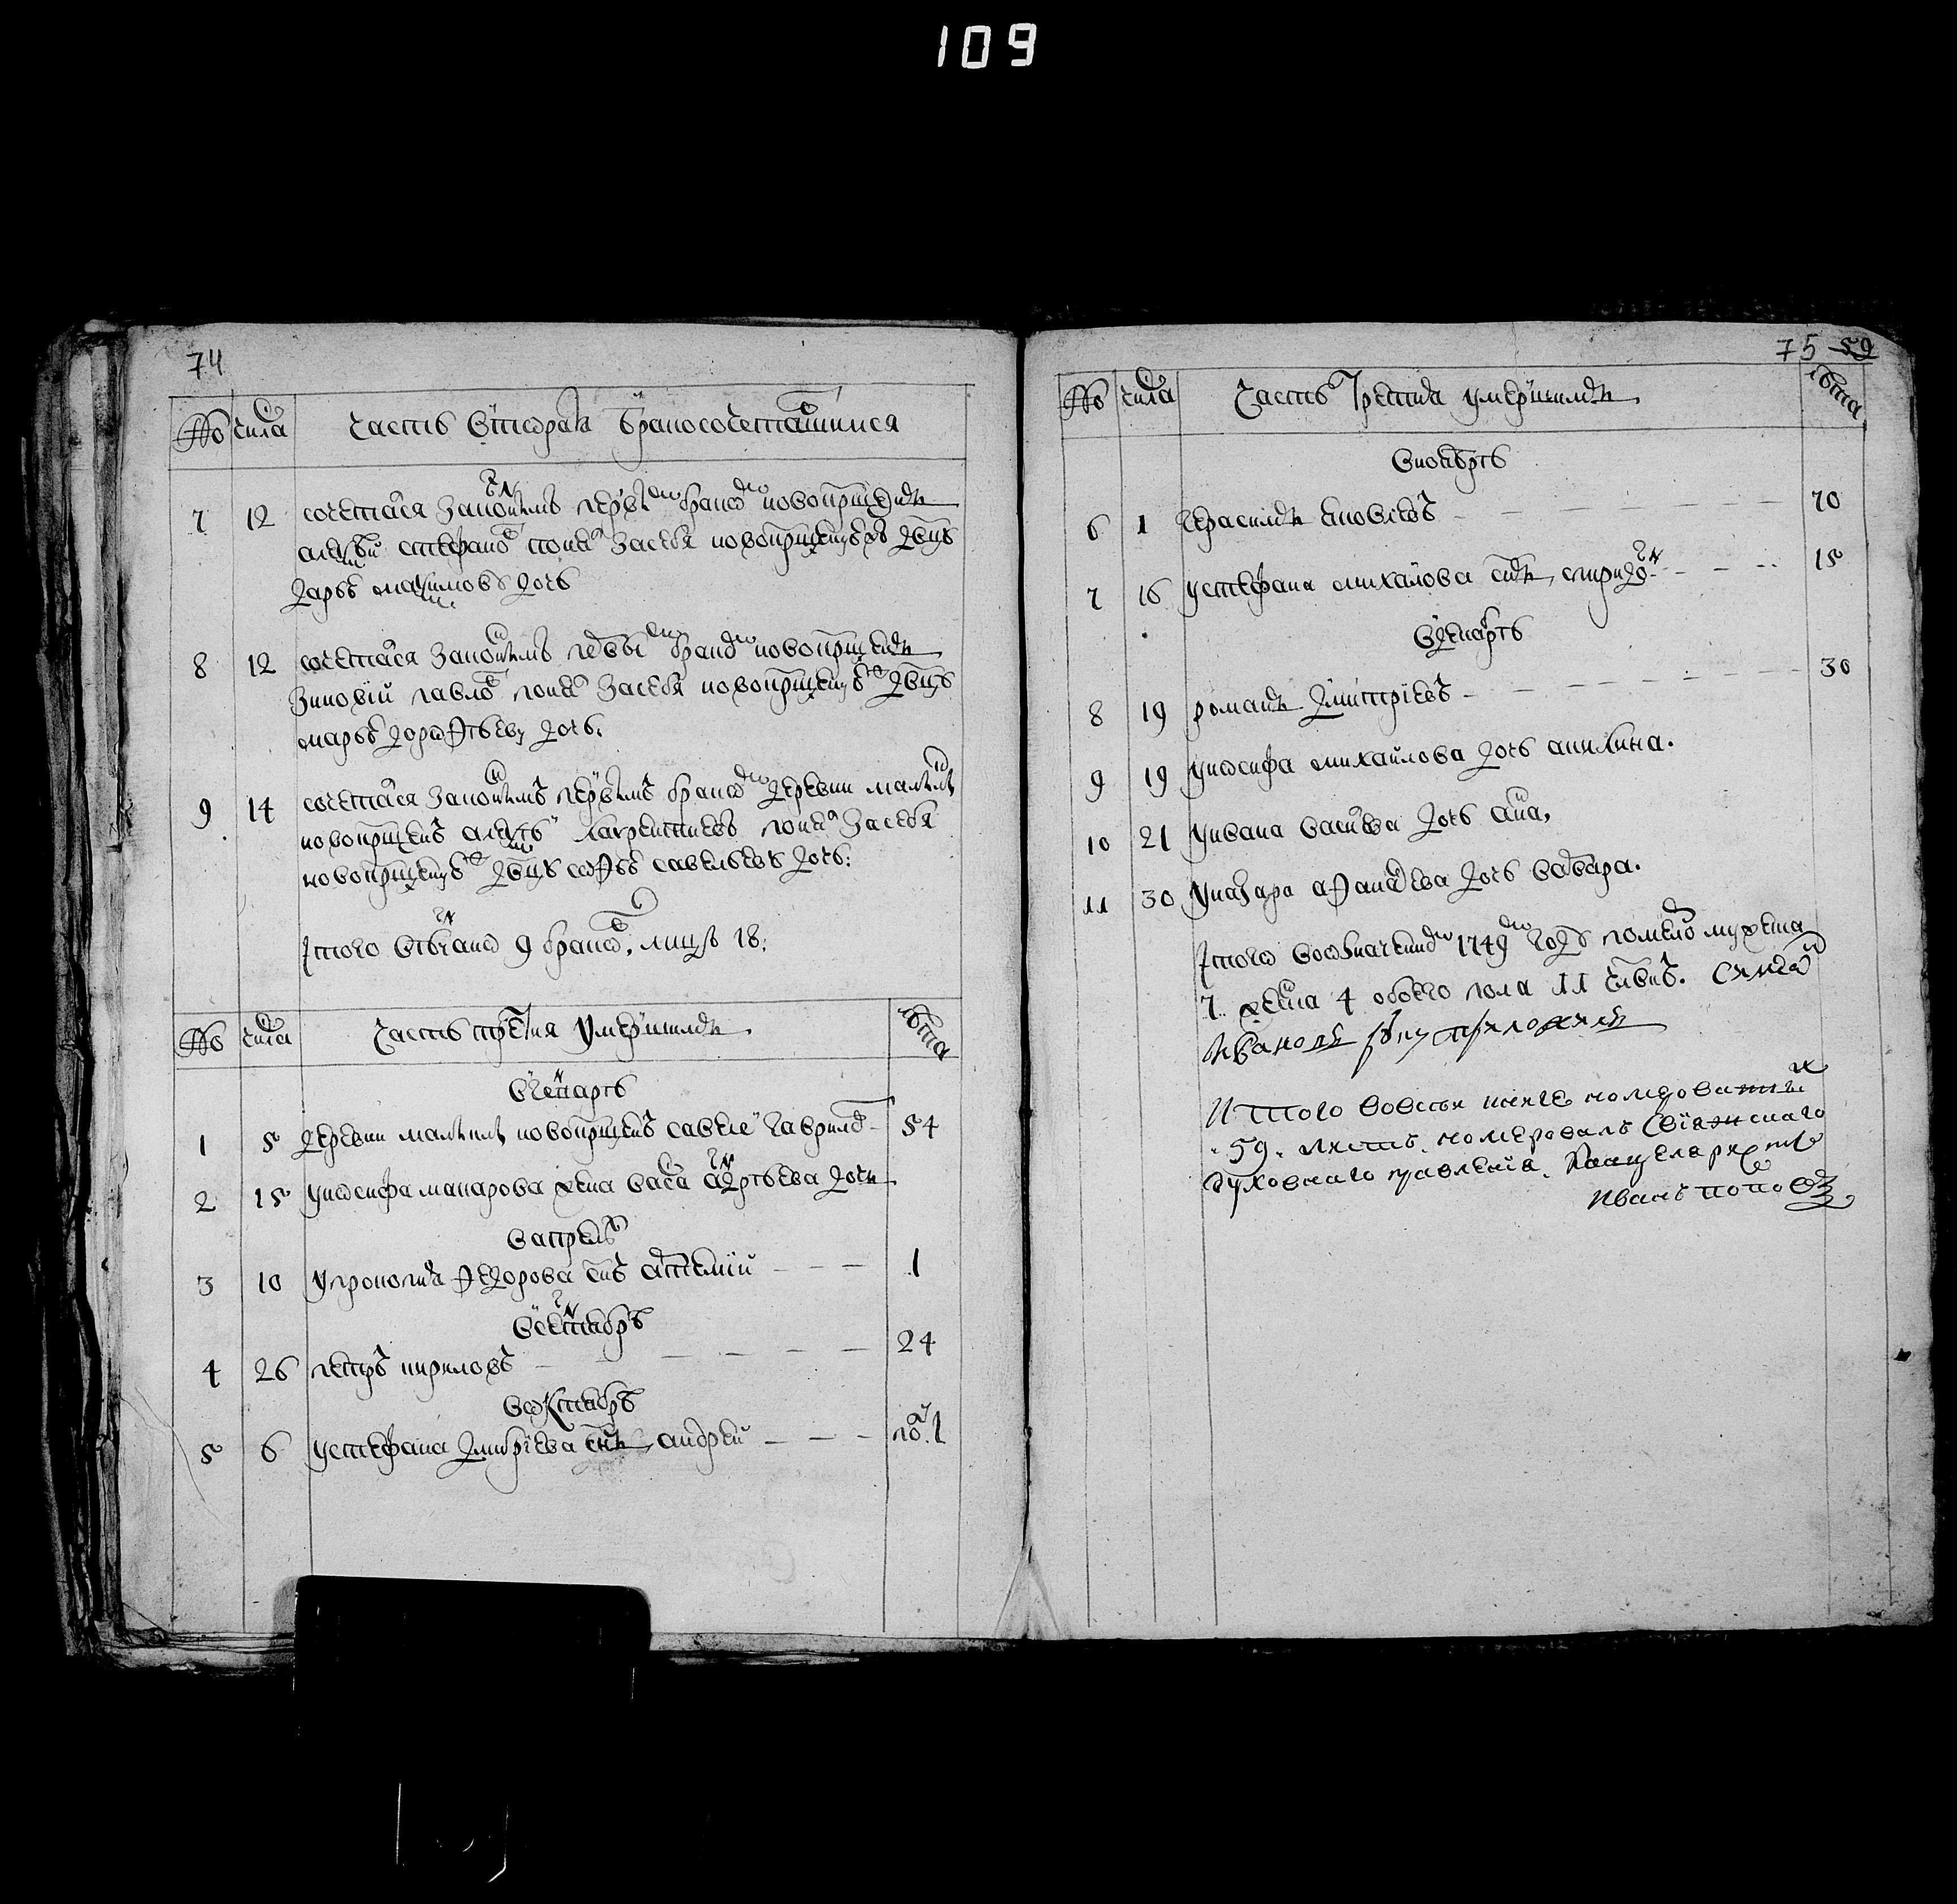 109
74
№ числа часть вторая бракосочетавшимся
7 12 сочетася законнымъ первы бракомъ новокрещенъ
алексѣй стефановъ понялъ за себя новокрещенскую дѣвку
дарью максимову дочь
8 12 сочетася законнымъ первы бракомъ новокрещенъ
зиновiй павловъ понялъ за себя новокрещенскую дѣвку
марью дорофѣеву дочь.
9 14 сочетася законнымъ первымъ бракомъ деревни
новокрещенъ алексѣй лаврентиевъ понялъ за себя
новокрещенскую дѣвку софью савельеву дочь:
Iтого вѣнчано 9 браковъ, лицъ 18.
№ числа часть третiя умершимъ лѣта
в генварѣ
1 5 деревни новокрещенъ савелей гавриловъ 54
2 15 у иосифа макарова жена васса андрѣева дочь
в апрелѣ
3 10 у прокопия федорова сынъ артемiй 1
в сентябрѣ
4 26 петръ кириловъ 24
в октябрѣ
5 6 у стефана дмитрiева сынъ андрей пол 1
75 59
№ числа часть третия умершимъ лѣта
в ноябрѣ
6 1 герасимъ яковлевъ 70
7 16 у стефана михайлова сынъ спиридонъ 15
в декабрѣ
8 19 романъ дмитрiевъ 30
9 19 у иосифа михайлова дочь акилина.
10 21 у ивана васильева дочь анна.
11 30 у назара афанасьева дочь варвара.
Iтого в означенномъ 1749 году померло мужеска
7 женска 4 обоего пола 11 человѣкъ. Священникъ
Иванов руку приложилъ
Итого во всѣи книге номерованныхъ
59 листъ. номеровалъ Свiяжскаго
духовнаго правленiя. Канцеляристъ
Иванъ Поповъ